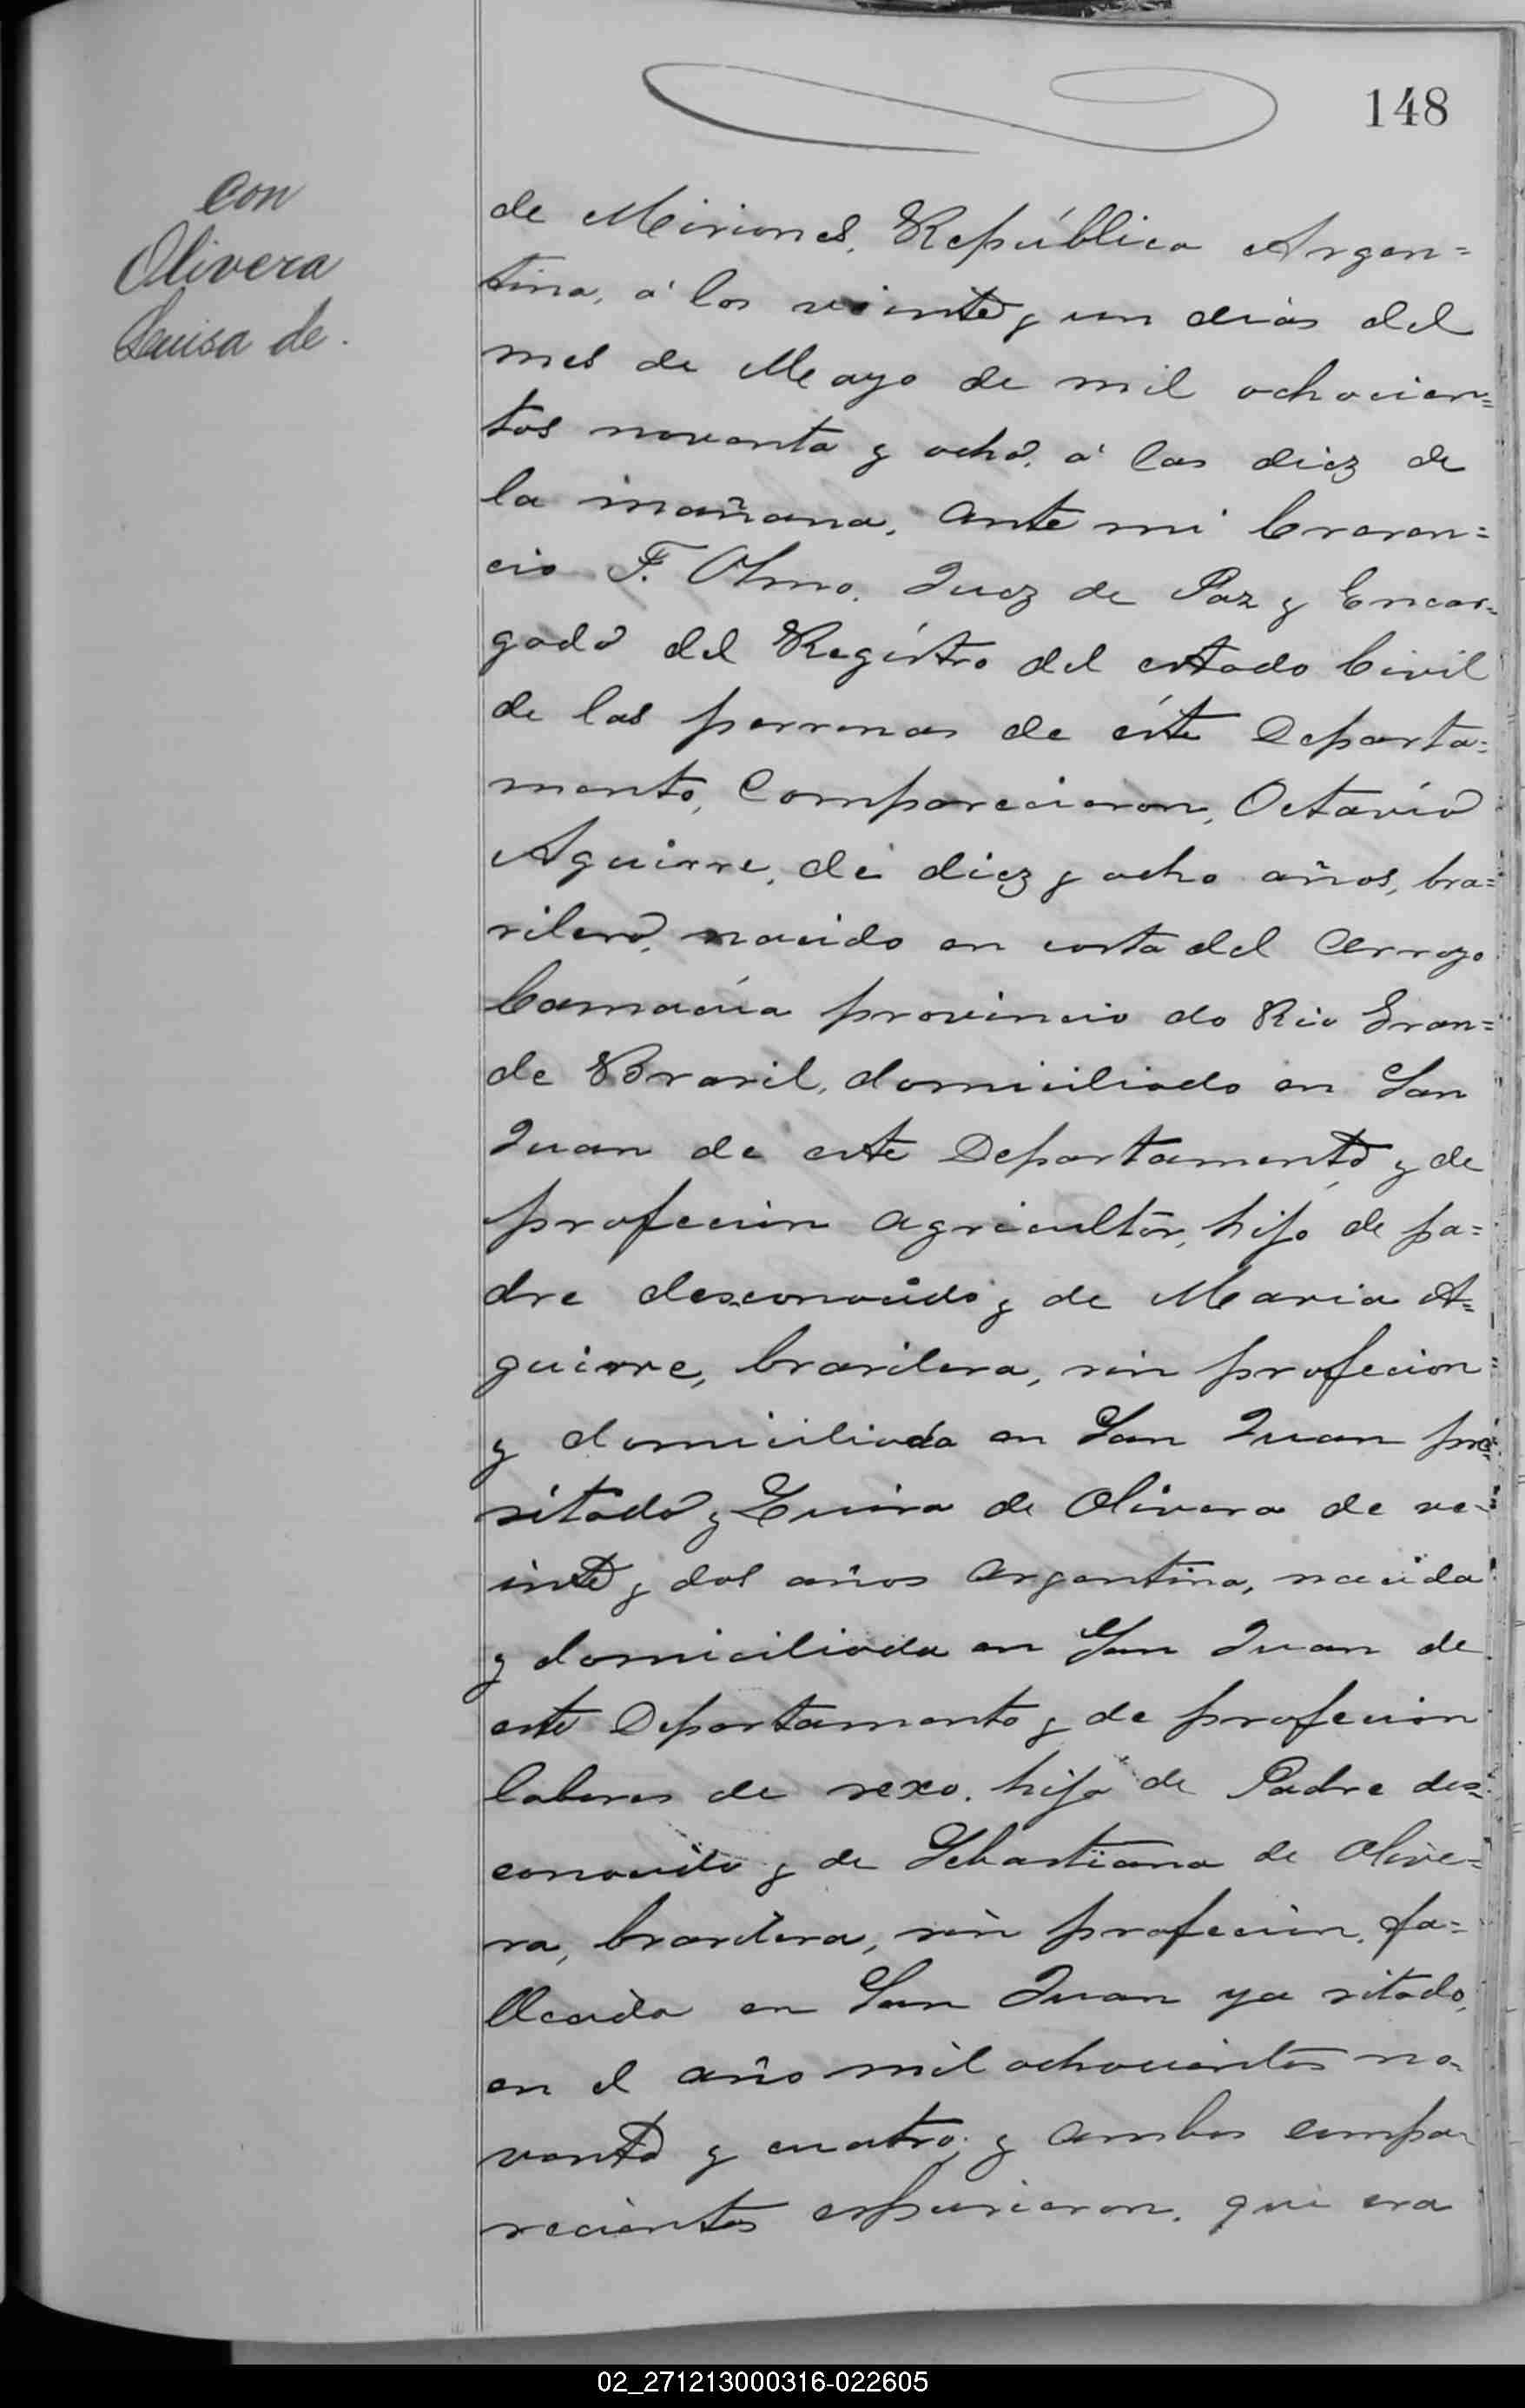 148
con
Olivera
Luisa de.
de Misiones. República Argen=
tina, á los veinte y un dias del
mes de Mayo de mil ochocien=
tos noventa y ocho, á las diez de
la mañana, ante mi Craren=
cio F. Olmo. Juez de Paz y Encar=
gado del Registro del estado Civil
de las personas de éste Departa=
mento, Comparecieron, Octavio
Aguirre, de diez y ocho años, bra=
silero, nacido en costa del Arroyo
Camacúa provincia do Rio Gran=
de Brasil, domiciliado en San
Juan de este Departamento, y de
profecion agricultor, hijo de pa=
dre desconocido y de Maria A=
guirre, brasilera, sin profecion
y domiciliada en San Juan pre=
sitado y Luisa de Olivera de ve=
inte y dos años argentina, nacida
y domiciliada en San Juan de
este Departamento y de profecion
labores de sexo, hija de Padre des=
conocido y de Sebastiana de Olive=
ra, brasilera, sin profecion, fa=
llecida en San Juan ya sitado,
en el año mil ochocientos no=
venta y cuatro; y ambos compa=
recientes espusieron, que era
02_271213000316-022605